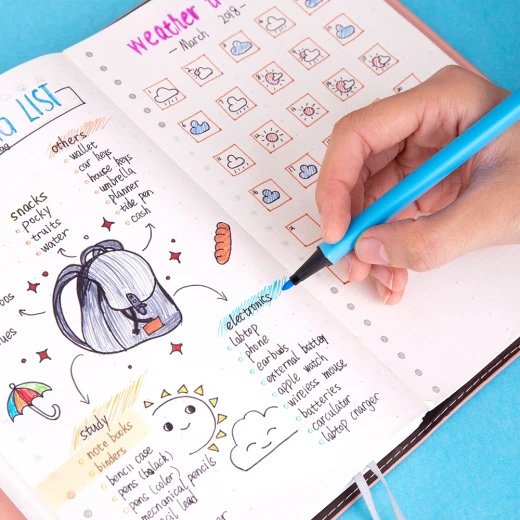 LIST
others
wallet
car keys
house keys
umbrella
planner
tide pen
cash
snacks
Pocky
fruits
water
electronics
labtop
phone
earbuds
external battery
apple watch
wireless mouse
batteries
carculator
labtop charger
study
note books
binders
pencil case
pens (black)
pens (color)
mechanical pencils
Weather
- March 2018 -